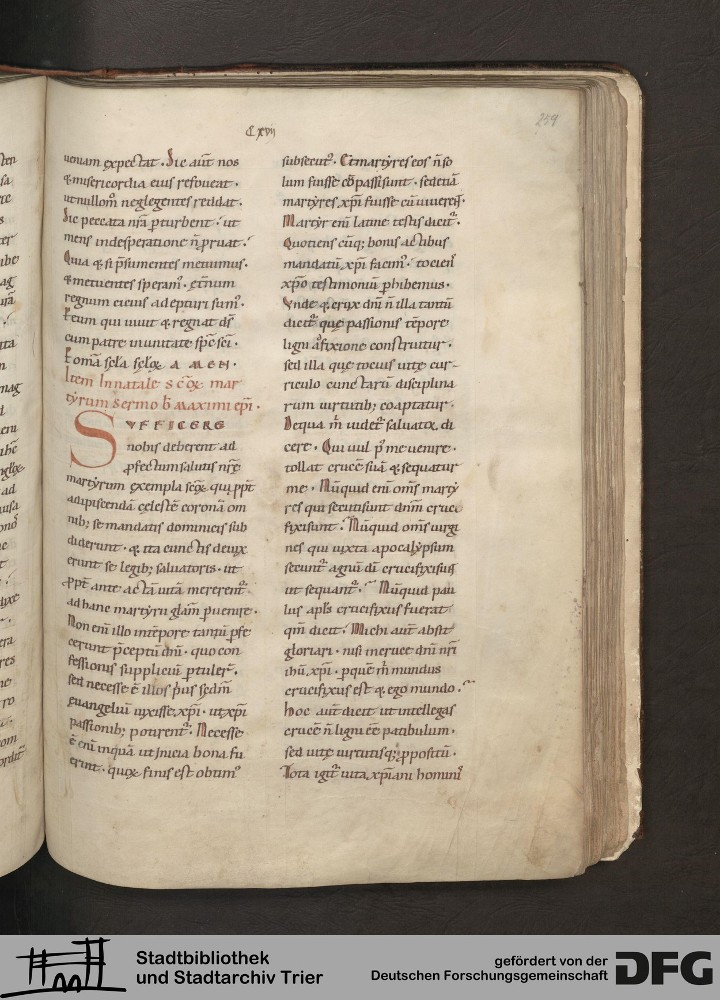 C xvii
239
ueniam expectat. Sic aut̄ nos
& misericordia eius refoueat.
ut nullom̊ neglegentes reddat.
Sic peccata nr̄a ꝑturbent. ut
mens indesperatione n̄ pruat.
Quia & si p̄sumentes metuimus.
& metuentes speram᷒. et̄num
regnum eius adepturi sum᷒.
Eum qui uiuit & regnat ds̄
cum patre in unitate sp̄c sc̄i.
A M E N.
Item In natale s̄c̄ꝝ mar
tyrum Sermo b̄ maximi epī.
SVFFICERE
nobis deberent ad
ꝓfectum salutis nr̄ę
martyrum exempla seq̄ qui ꝓpt̄
adipiscendā cęlestē coronā om
nib; se mandatis dominicis sub
diderunt. & ita cunctis deuix
erunt se legib; saluatoris. ut
ꝓpt̄ ante actā uitā mererent᷒.
ad hanc martyrii gl̄am ꝑuenire.
Non enī illo intēpore tantū ꝑfe
cerunt p̄ceptū dn̄i. quo con
fessionis suppliciū ꝑtuler̄.
sed necesse ē illos p̄us sc̄dm̄
euangeliū uixisse xp̄i. ut xp̄i
passionib; potirent᷒. Necesse
ē enī inquā ut inicia bona fu
erint. quoꝝ finis est obtim᷒
subsecut᷒. Et martyres eos n̄ so
lum fuisse cō passi sunt. sed etiā
martyres xp̄i fuisse cū uiuereȳ.
Martyr enī latine testis dicit᷒.
Quotiens cūq; bonis actibus
mandatū xp̄i facim᷒. tocien᷒
xp̄o testimoniū ꝑhibemus.
Vnde & crux dn̄i n̄ illa tantū
dicit᷒ quę passionis tēpore
ligni affixione construitur.
sed illa quę tocius uitę cur-
riculo cunctarū disciplina
rum uirtutib; coaptatur.
De qua m̄ uidet᷒ saluator di
cere. Qui uul p᷒ me uenire.
tollat crucē suā & sequatur
me. Nūquid enī om̄s marty
res qui secuti sunt dn̄m cruci
fixi sunt. Nūquid om̄s uirgi
nes qui iuxta apocalypsum
secunt᷒ agnū dī crucifixi sus
ut sequant᷒. Nūquid pau
lus apl̄s crucifixus fuerat
qm̄ dicit. Michi aut̄ absit
gloriari. nisi in cruce dn̄i nr̄i
ihū xp̄i. ꝑ quē m̄ mundus
crucifixus est & ego mundo.
hoc aut̄ dicit ut intellegas
crucē n̄ ligni ēē patibulum.
sed uitę uirtutisq; ꝓpositū.
Tota igit᷒ uita xp̄iani homini᷒
Stadtbibliothek
und Stadtarchiv Trier
gefördert von der
Deutschen Forschungsgemeinschaft
DFG